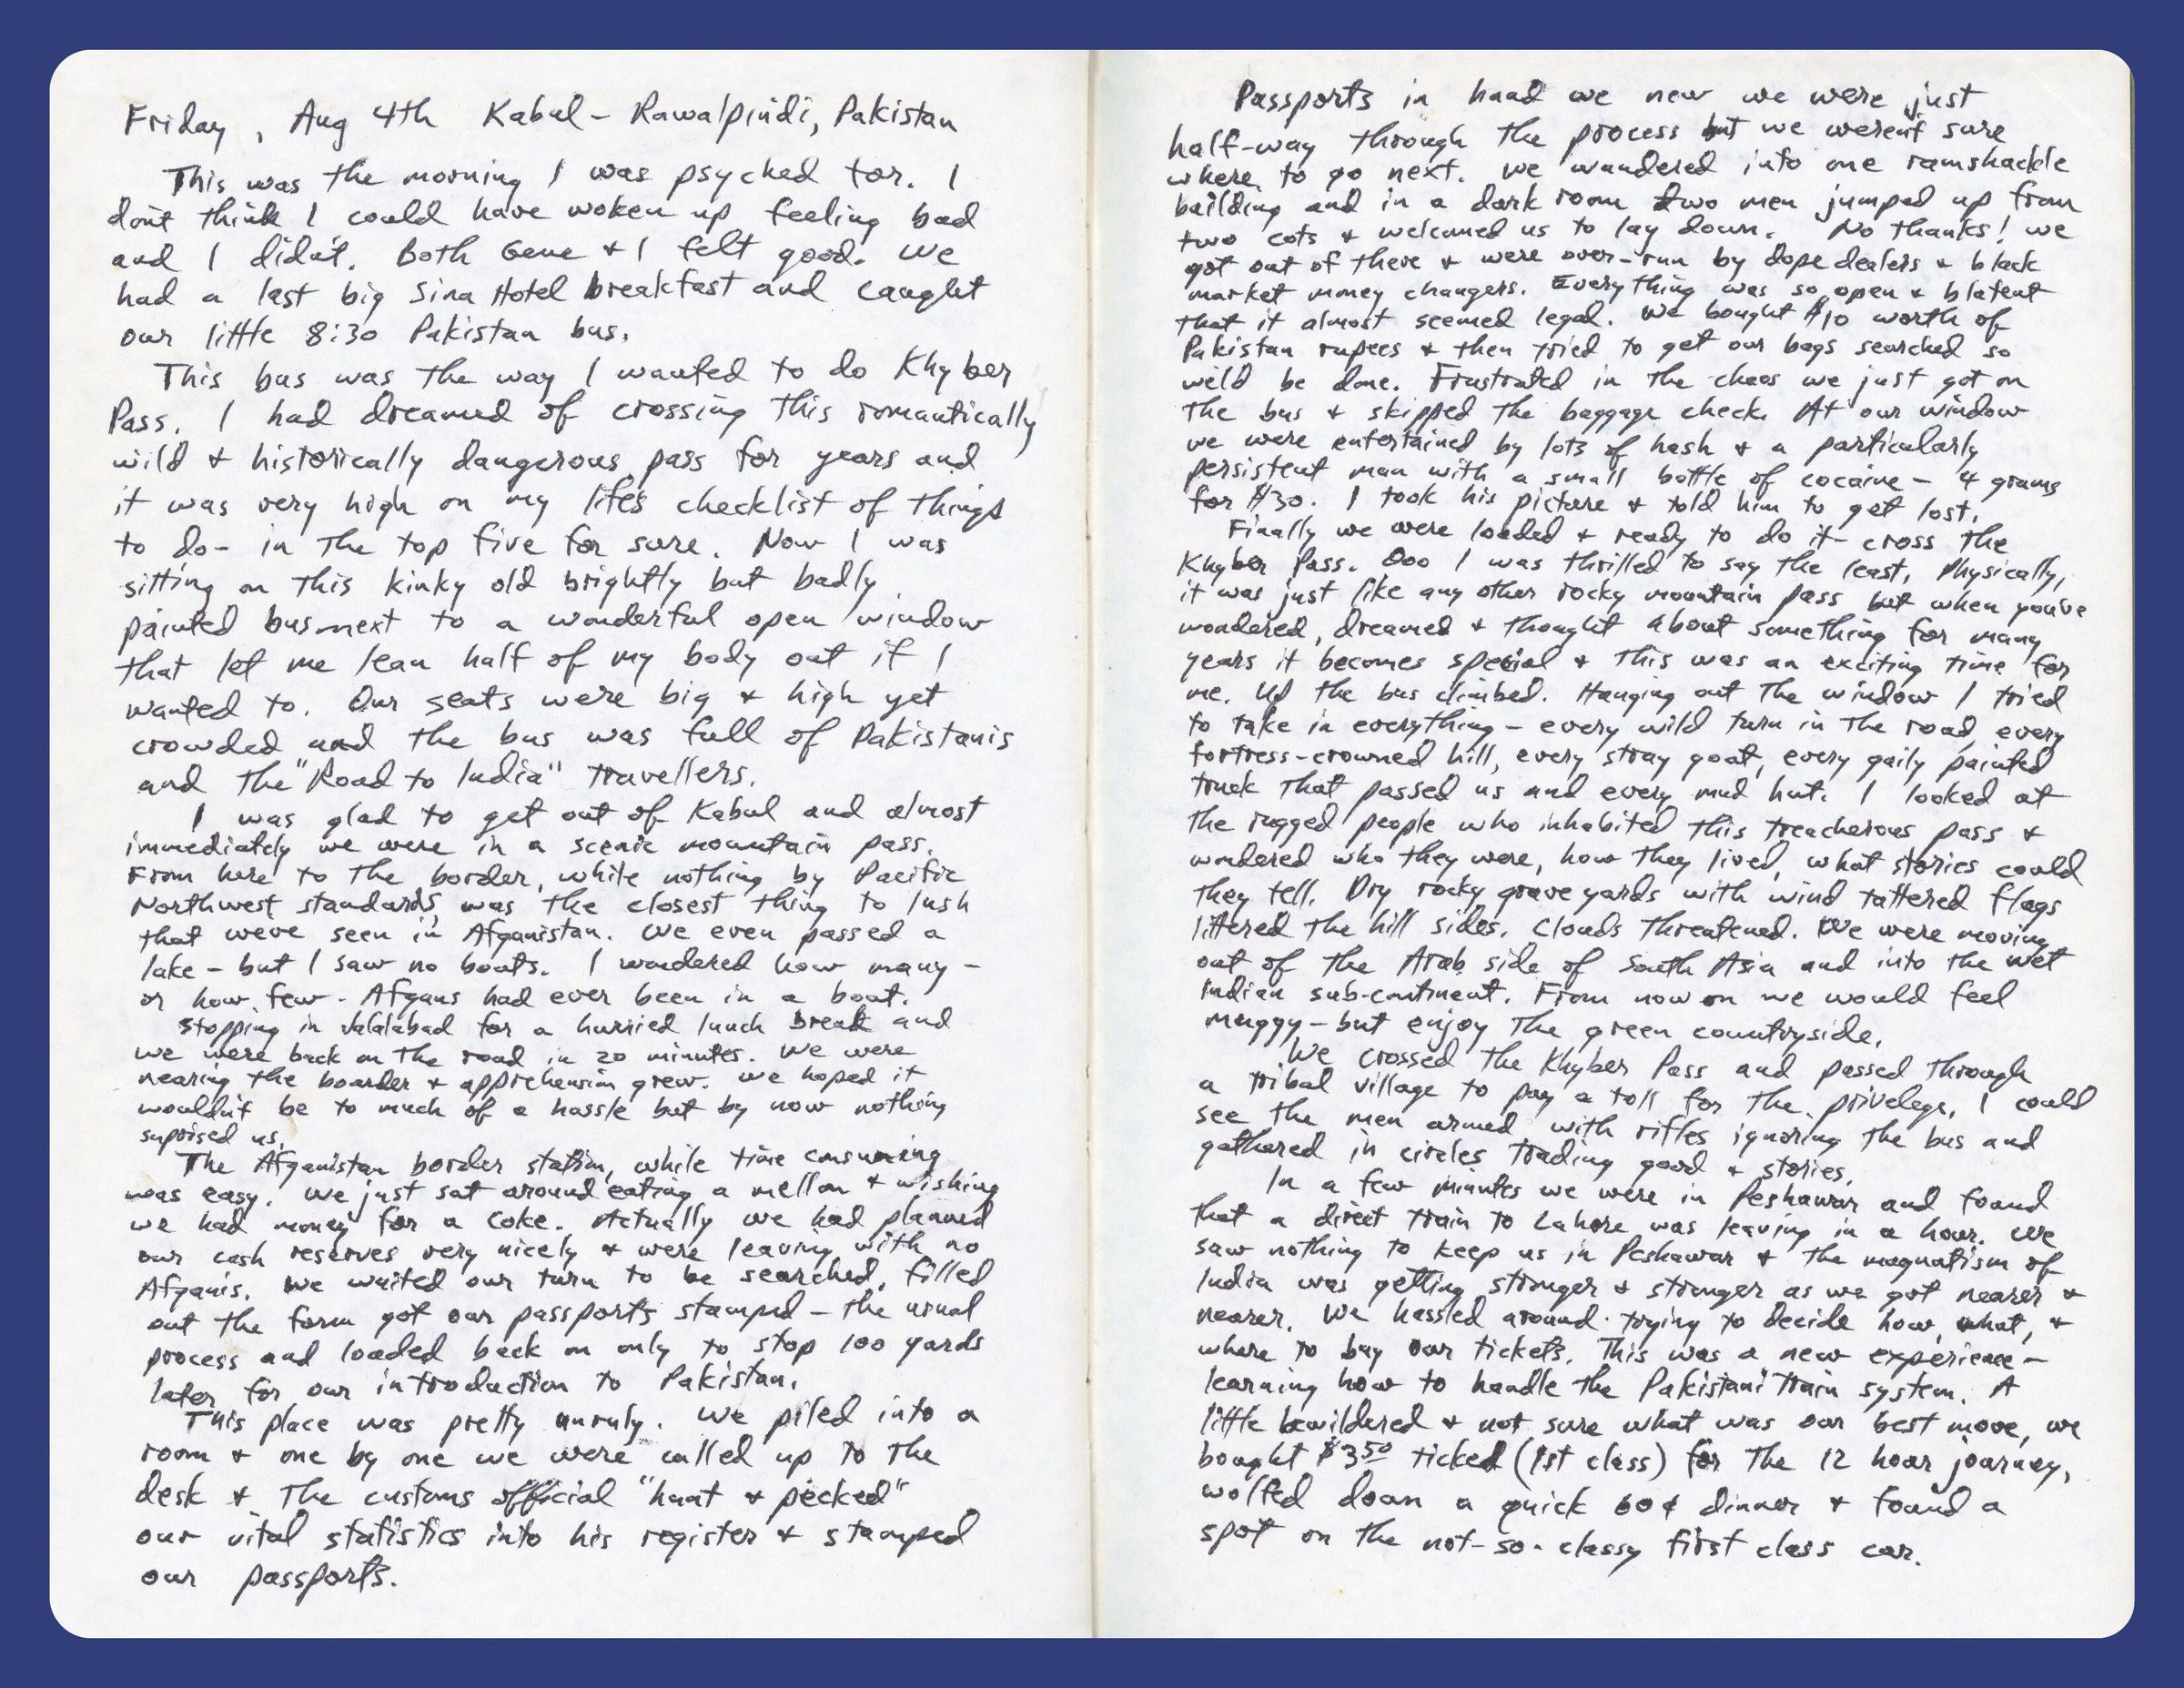 Friday, Aug 4th Kabul - Rawalpindi, Pakistan
This was the morning I was psyched for. I
don't think I could have woken up feeling bad
and I didn't. Both Gene & I felt good. We
had a last big Sina Hotel breakfast and caught
our little 8:30 Pakistan bus.
This bus was the way I wanted to do Khyber
Pass. I had dreamed of crossing this romantically
wild & historically dangerous pass for years and
it was very high on my life's checklist of things
to do - in the top five for sure. Now I was
sitting on this kinky old brightly but badly
painted bus next to a wonderful open window
that let me lean half of my body out if I
wanted to. Our seats were big & high yet
crowded and the bus was full of Pakistanis
and the "Road to India" travellers.
I was glad to get out of Kabul and almost
immediately we were in a scenic mountain pass.
From here to the border, while nothing by Pacific
Northwest standards, was the closest thing to lush
that we've seen in Afganistan. We even passed a
lake - but I saw no boats. I wondered how many -
or how few - Afgans had ever been in a boat.
Stopping in Jalalabad for a hurried lunch break and
we were back on the road in 20 minutes. We were
nearing the boarder & apprehension grew. We hoped it
wouldn't be to much of a hassle but by now nothing
suprised us.
The Afganistan border station, while time consuming
was easy. We just sat around eating a mellon & wishing
we had money for a Coke. Actually we had planned
our cash reserves very nicely & were leaving with no
Afganis. We waited our turn to be searched, filled
out the form got our passports stamped - the usual
process and loaded back on only to stop 100 yards
later for our introduction to Pakistan.
This place was pretty unruly. We piled into a
room & one by one we were called up to the
desk & the customs official "hunt & pecked"
our vital statistics into his register & stamped
our passports.
Passports in hand we new we were just
half-way through the process but we weren't sure
where to go next. We wandered into one ramshackle
building and in a dark room two men jumped up from
two cots & welcomed us to lay down. No thanks! We
got out of there & were over-run by dope dealers & black
market money changers. Everything was so open & blatent
that it almost seemed legal. We bought $10 worth of
Pakistan rupees & then tried to get our bags searched so
we'd be done. Frustrated in the chaos we just got on
the bus & skipped the baggage check. At our window
we were entertained by lots of hash & a particularly
persistent man with a small bottle of cocaine - 4 grams
for $30. I took his picture & told him to get lost.
Finally we were loaded & ready to do it - cross the
Khyber Pass. Ooo I was thrilled to say the least. Physically,
it was just like any other rocky mountain pass but when you've
wondered, dreamed & thought about something for many
years it becomes special & this was an exciting time for
me. Up the bus climbed. Hanging out the window I tried
to take in everything - every wild turn in the road, every
fortress-crowned hill, every stray goat, every gaily painted
truck that passed us and every mud hut. I looked at
the rugged people who inhabited this treacherous pass &
wondered who they were, how they lived, what stories could
they tell. Dry rocky grave yards with wind tattered flags
littered the hill sides. Clouds threatened. We were moving
out of the Arab side of South Asia and into the wet
Indian sub-continent. From now on we would feel
muggy - but enjoy the green countryside.
We crossed the Khyber Pass and passed through
a tribal village to pay a toll for the privelege. I could
see the men armed with rifles ignoring the bus and
gathered in circles trading good & stories.
In a few minutes we were in Peshawar and found
that a direct train to Lahore was leaving in a hour. We
saw nothing to keep us in Peshawar & the magnatism of
India was getting stronger & stronger as we got nearer &
nearer. We hassled around trying to decide how, what, &
where to buy our tickets. This was a new experience -
learning how to handle the Pakistani train system. A
little bewildered & not sure what was our best move, we
bought $3.50 ticked (1st class) for the 12 hour journey,
wolfed down a quick 60¢ dinner & found a
spot on the not-so-classy first class car.